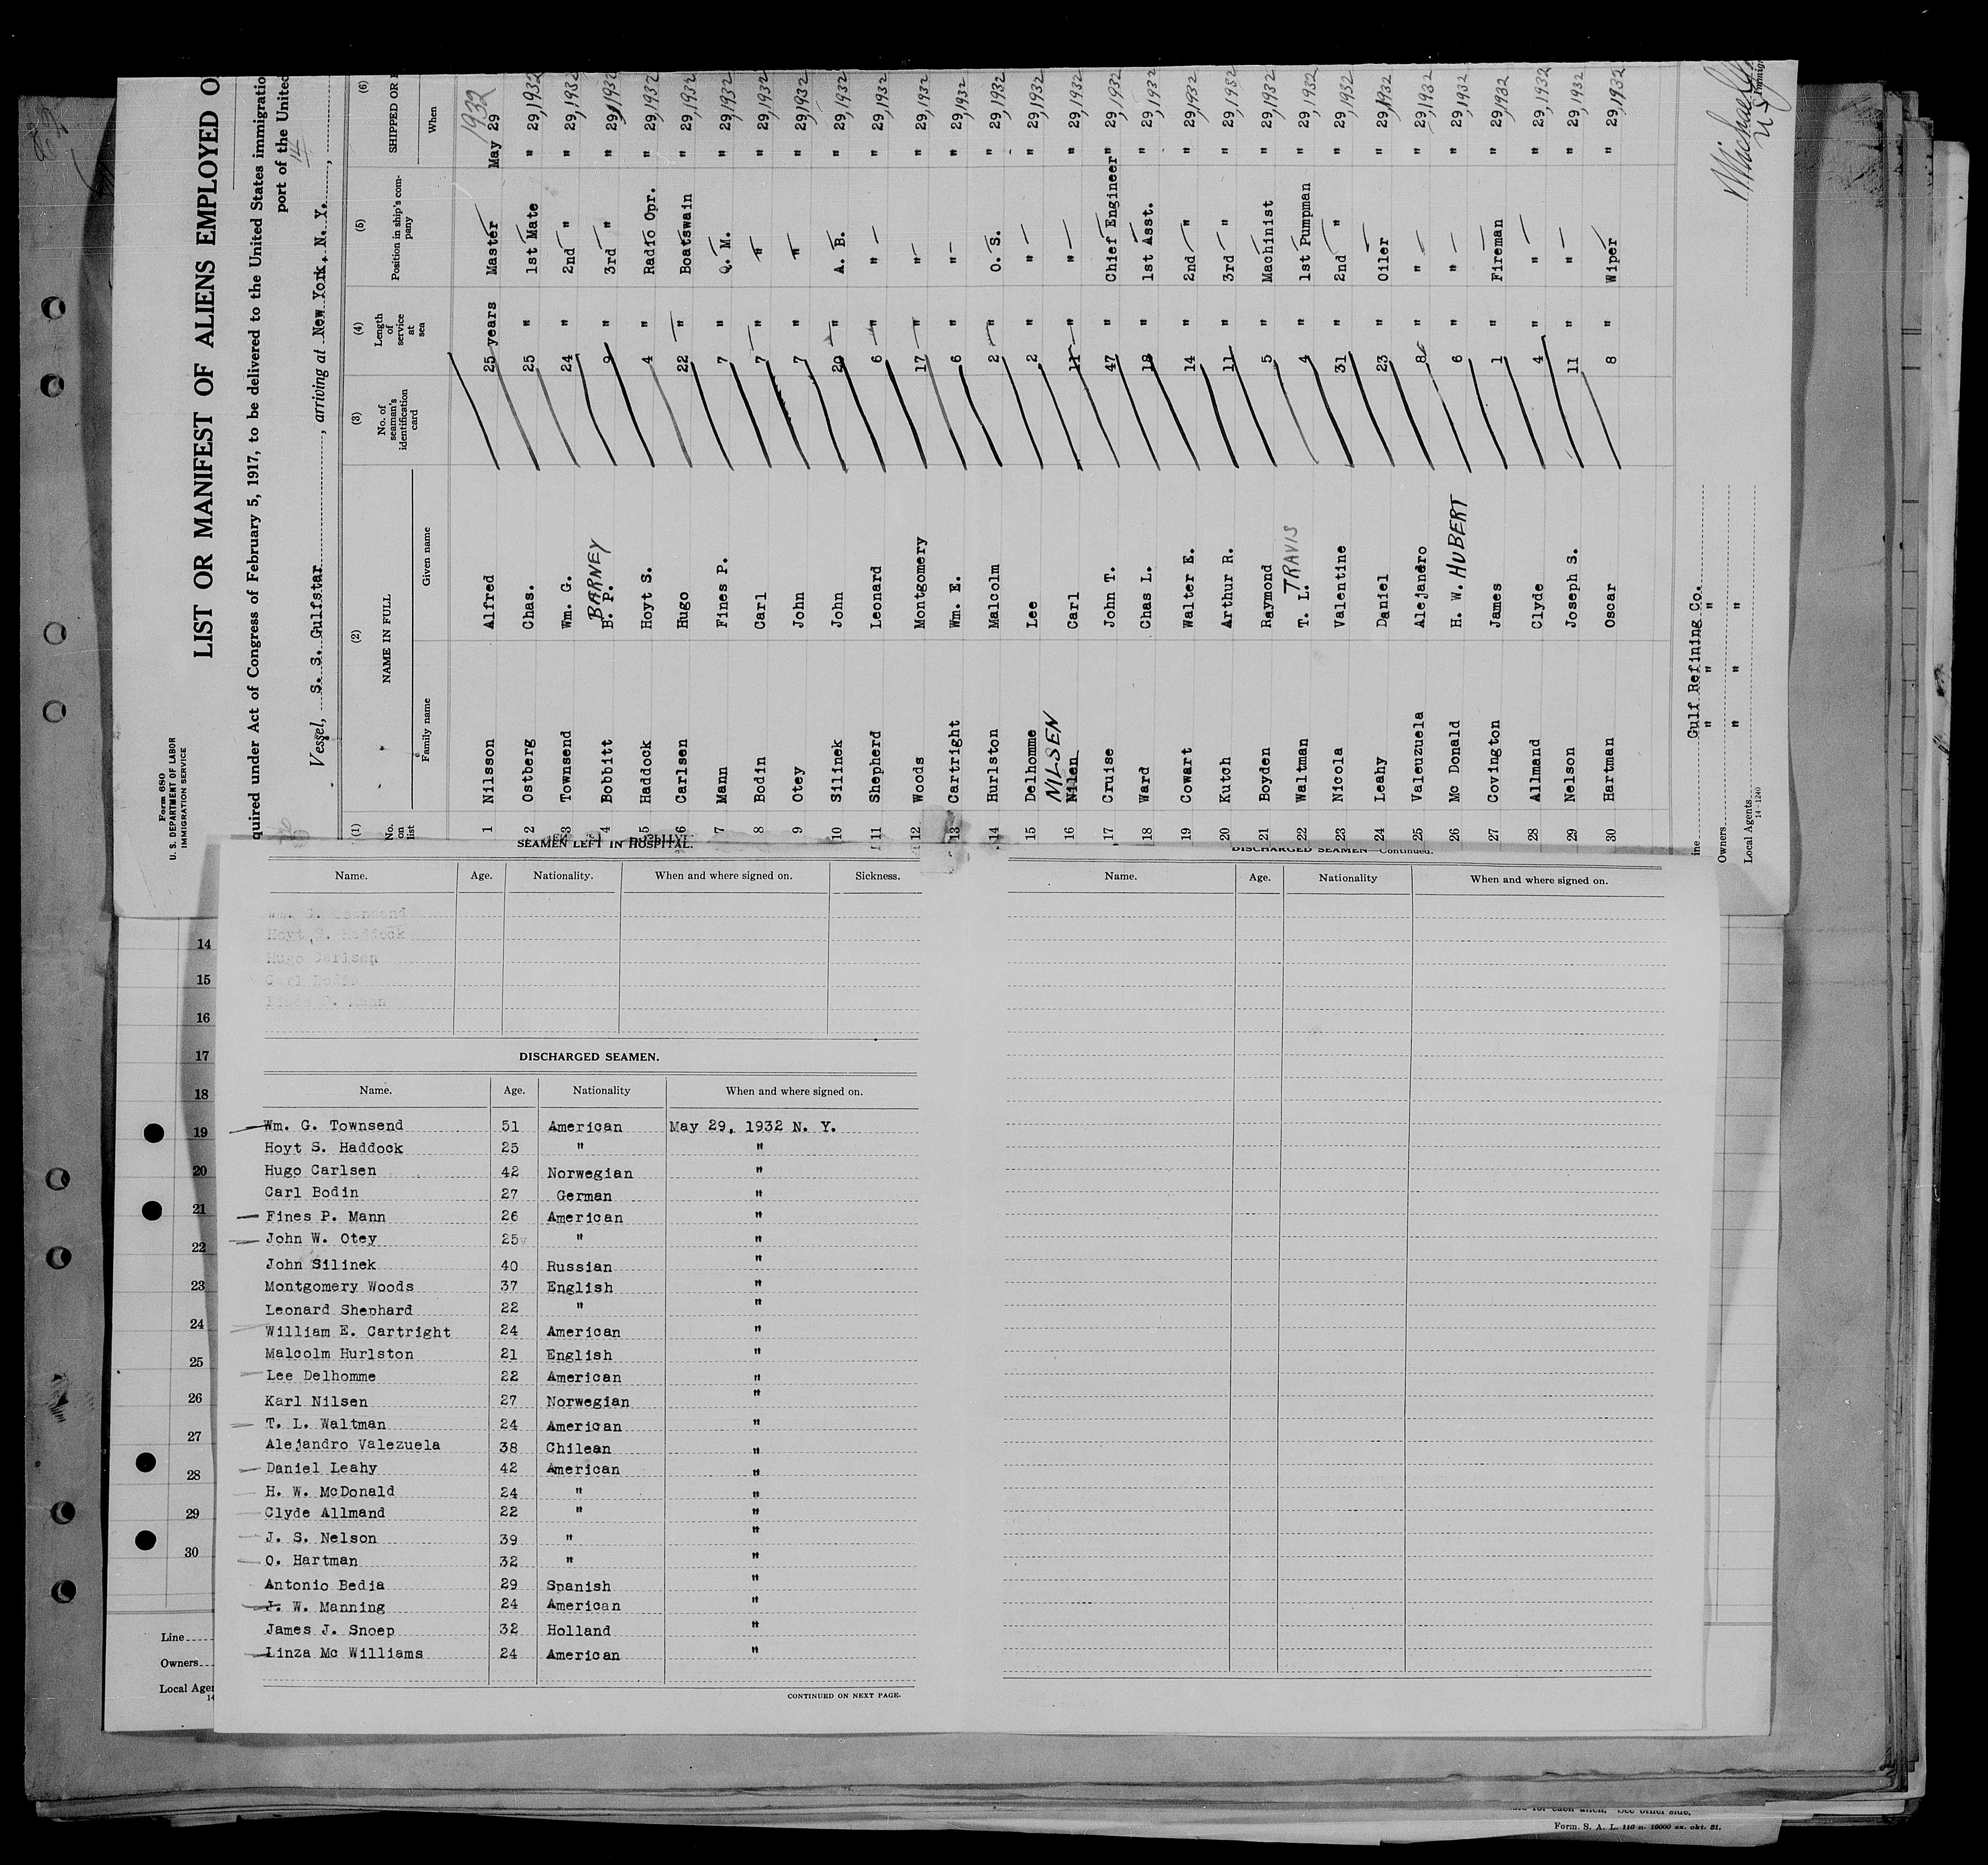 Form 680
U. S. DEPARTMENT OF LABOR
IMMIGRATION SERVICE
LIST OR MANIFEST OF ALIENS EMPLOYED O
quired under Act of Congress of February 5, 1917, to be delivered to the United States immigratio
port of the United
Vessel, S. S. Gulfstar, arriving at New York, N. Y.,
(1) (2) (3) (4) (5) (6)
No. on list NAME IN FULL No. of seaman's identification card Length of service at sea Position in ship's company SHIPPED OR
Family name Given name When
1932
1 Nilsson Alfred 25 years Master May 29
2 Ostberg Chas. 25 " 1st Mate " 29, 1932
3 Townsend Wm. G. 24 " 2nd " " 29, 1932
BARNEY
4 Bobbitt B. P. 9 " 3rd " " 29, 1932
5 Haddock Hoyt S. 4 " Radio Opr. " 29, 1932
6 Carlsen Hugo 22 " Boatswain " 29, 1932
7 Mann Fines P. 7 " Q. M. " 29, 1932
8 Bodin Carl 7 " " " 29, 1932
9 Otey John 7 " " " 29, 1932
10 Silinek John 20 " A. B. " 29, 1932
11 Shepherd Leonard 6 " " " 29, 1932
12 Woods Montgomery 17 " " " 29, 1932
13 Cartright Wm. E. 6 " " " 29, 1932
14 Hurlston Malcolm 2 " O. S. " 29, 1932
15 Delhomme Lee 2 " " " 29, 1932
NILSEN
16 Nilen Carl 11 " " " 29, 1932
17 Cruise John T. 47 " Chief Engineer " 29, 1932
18 Ward Chas L. 18 " 1st Asst. " 29, 1932
19 Cowart Walter E. 14 " 2nd " " 29, 1932
20 Kutch Arthur R. 11 " 3rd " " 29, 1932
21 Boyden Raymond 5 " Machinist " 29, 1932
22 Waltman T. L. TRAVIS 4 " 1st Pumpman " 29, 1932
23 Nicola Valentine 31 " 2nd " " 29, 1932
24 Leahy Daniel 23 " Oiler " 29, 1932
25 Valeuzuela Alejandro 8 " " " 29, 1932
26 Mc Donald H. W. HUBERT 6 " " " 29, 1932
27 Covington James 1 " Fireman " 29, 1932
28 Allmand Clyde 4 " " " 29, 1932
29 Nelson Joseph S. 11 " " " 29, 1932
30 Hartman Oscar 8 " Wiper " 29, 1932
ine Gulf Refining Co.
Owners " " "
Local Agents " " "
14-1240
SEAMEN LEFT IN HOSPITAL.
Name. Age. Nationality. When and where signed on. Sickness.
Wm. G. Townsend
Hoyt S. Haddock
Hugo Carlsen
Carl Bodin
Fines P. Mann
DISCHARGED SEAMEN.
Name. Age. Nationality When and where signed on.
Wm. G. Townsend 51 American May 29, 1932 N. Y.
Hoyt S. Haddock 25 " "
Hugo Carlsen 42 Norwegian "
Carl Bodin 27 German "
Fines P. Mann 26 American "
John W. Otey 25 " "
John Silinek 40 Russian "
Montgomery Woods 37 English "
Leonard Shephard 22 " "
William E. Cartright 24 American "
Malcolm Hurlston 21 English "
Lee Delhomme 22 American "
Karl Nilsen 27 Norwegian "
T. L. Waltman 24 American "
Alejandro Valezuela 38 Chilean "
Daniel Leahy 42 American "
H. W. McDonald 24 " "
Clyde Allmand 22 " "
J. S. Nelson 39 " "
O. Hartman 32 " "
Antonio Bedia 29 Spanish "
J. W. Manning 24 American "
James J. Snoep 32 Holland "
Linza Mc Williams 24 American "
CONTINUED ON NEXT PAGE.
DISCHARGED SEAMEN—Continued.
Name. Age. Nationality When and where signed on.
14
15
16
17
18
19
20
21
22
23
24
25
26
27
28
29
30
Line
Owners
Local Age
14
for each alien. See other side.
Form. S. A. L. 116 n. 10000 ex. okt. 31.